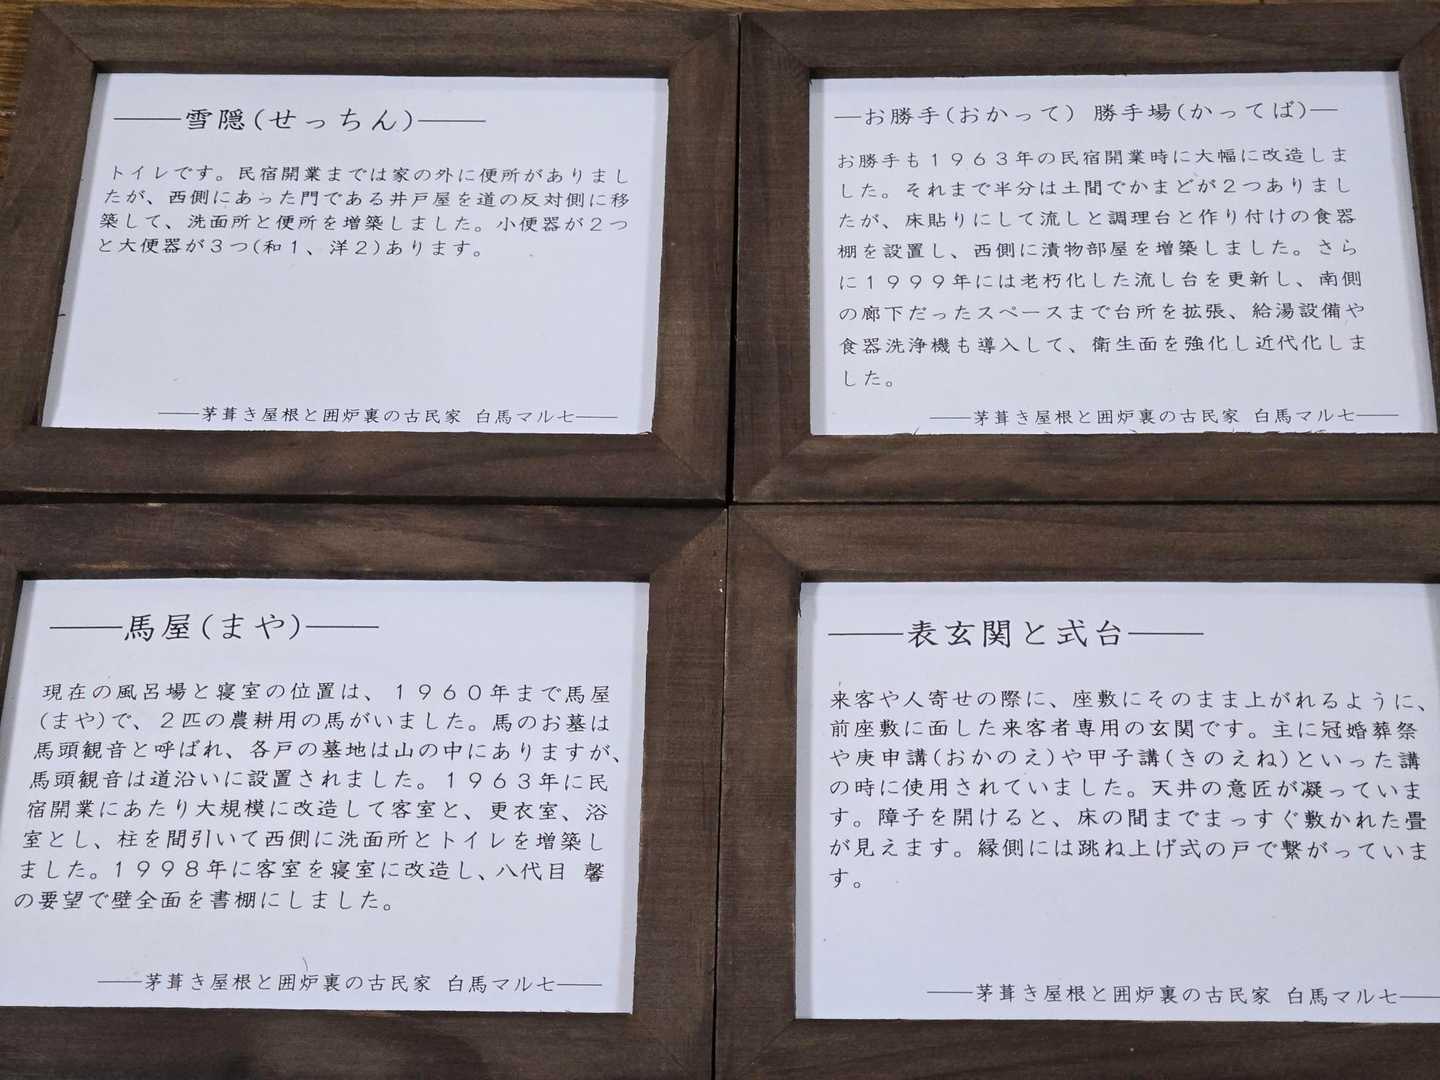 ――雪隠(せっちん)――
トイレです。民宿開業までは家の外に便所がありまし
たが、西側にあった門である井戸屋を道の反対側に移
築して、洗面所と便所を増築しました。小便器が２つ
と大便器が３つ(和１、洋２)あります。
――茅葺き屋根と囲炉裏の古民家 白馬マル七――
―お勝手(おかって) 勝手場(かってば)―
お勝手も１９６３年の民宿開業時に大幅に改造しま
した。それまで半分は土間でかまどが２つありまし
たが、床貼りにして流しと調理台と作り付けの食器
棚を設置し、西側に漬物部屋を増築しました。さら
に１９９９年には老朽化した流し台を更新し、南側
の廊下だったスペースまで台所を拡張、給湯設備や
食器洗浄機も導入して、衛生面を強化し近代化しま
した。
――茅葺き屋根と囲炉裏の古民家 白馬マル七――
――馬屋(まや)――
現在の風呂場と寝室の位置は、１９６０年まで馬屋
(まや)で、２匹の農耕用の馬がいました。馬のお墓は
馬頭観音と呼ばれ、各戸の墓地は山の中にありますが、
馬頭観音は道沿いに設置されました。１９６３年に民
宿開業にあたり大規模に改造して客室と、更衣室、浴
室とし、柱を間引いて西側に洗面所とトイレを増築し
ました。１９９８年に客室を寝室に改造し、八代目 馨
の要望で壁全面を書棚にしました。
――茅葺き屋根と囲炉裏の古民家 白馬マル七――
――表玄関と式台――
来客や人寄せの際に、座敷にそのまま上がれるように、
前座敷に面した来客者専用の玄関です。主に冠婚葬祭
や庚申講(おかのえ)や甲子講(きのえね)といった講
の時に使用されていました。天井の意匠が凝っていま
す。障子を開けると、床の間までまっすぐ敷かれた畳
が見えます。縁側には跳ね上げ式の戸で繋がっていま
す。
――茅葺き屋根と囲炉裏の古民家 白馬マル七――